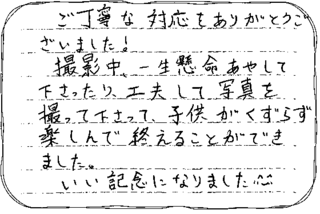 ご丁寧な対応をありがとうご
ざいました！
撮影中、一生懸命あやして
下さったり、工夫して写真を
撮って下さって、子供がくずらず
楽しんで終えることができ
ました。
いい記念になりました^^